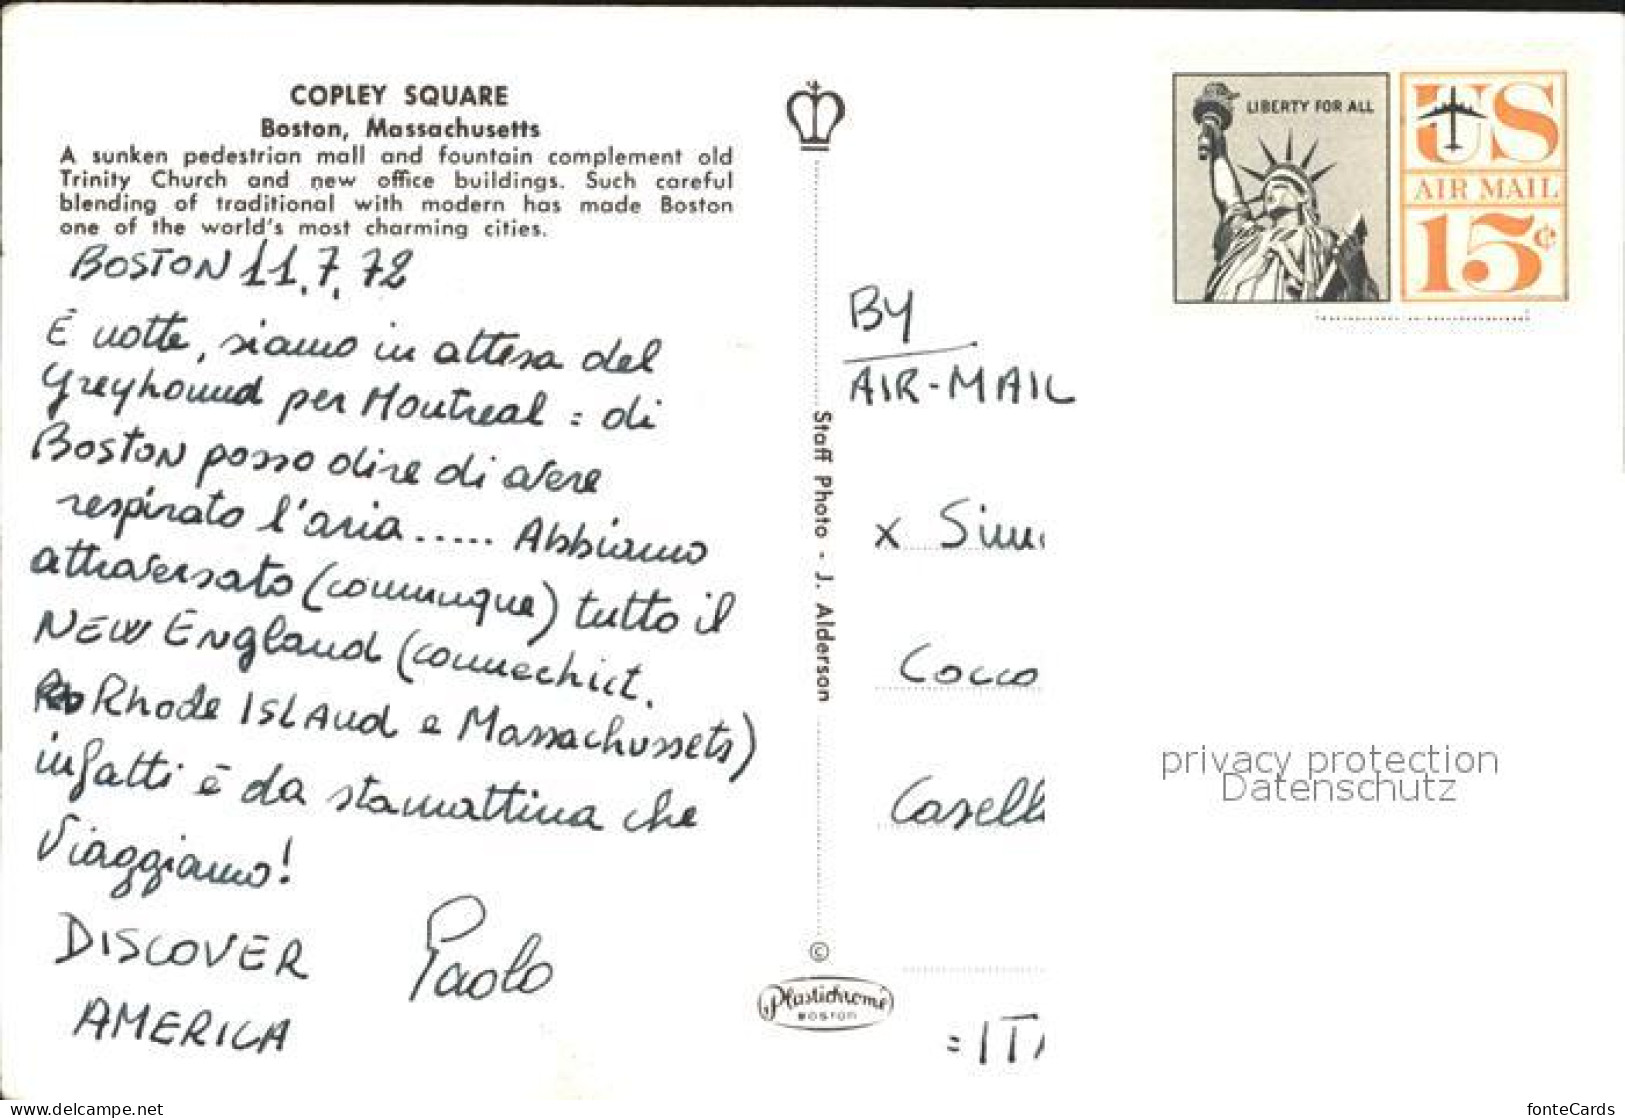 COPLEY SQUARE
Boston, Massachusetts
A sunken pedestrian mall and fountain complement old
Trinity Church and new office buildings. Such careful
blending of traditional with modern has made Boston
one of the world's most charming cities.
BOSTON 11.7.72
È notte, siamo in attesa del
Greyhound per Montreal = di
BOSTON posso dire di avere
respirato l'aria ..... Abbiamo
attraversato (comunque) tutto il
NEW ENGLAND (connechict.
Rhode ISLAND e Massachussets)
infatti è da stamattina che
Viaggiamo!
DISCOVER
AMERICA
Paolo
Staff Photo - J. Alderson
©
Plastichrome
BOSTON
LIBERTY FOR ALL
US
AIR MAIL
15¢
BY
AIR-MAIL
x Sim
Cocco
Casell
=ITA
privacy protection
Datenschutz
www.delcampe.net
fonteCards